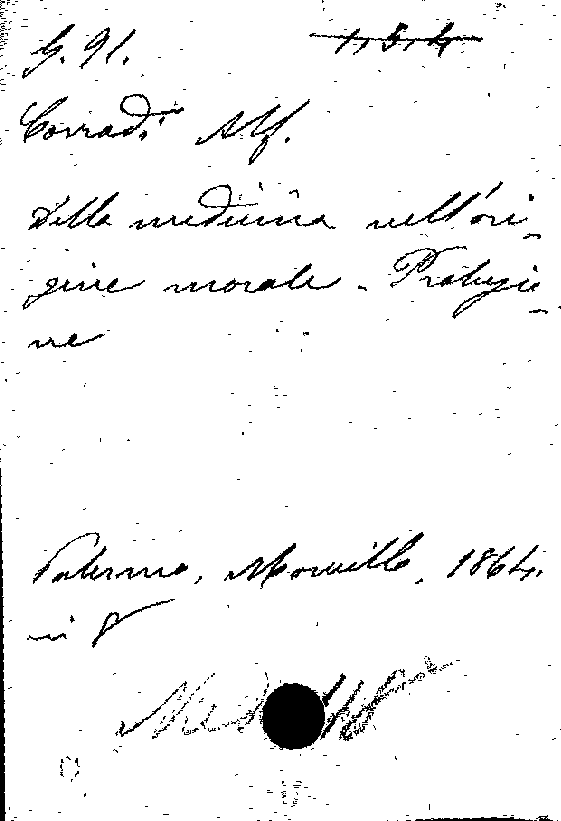 G. 91. 1, 3, 4
Corradi Alf.
Della medicina nell'ori-
gine morale - Prolusio-
ne
Palermo, Morvillo, 1864.
in 8
Med